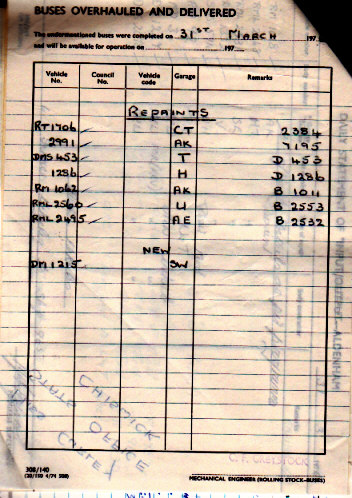 BUSES OVERHAULED AND DELIVERED
The undermentioned buses were completed on 31ST MARCH 197
and will be available for operation on 197
Vehicle No. Council No. Vehicle code Garage Remarks
REPAINTS
RT1706 ✓ CT 2384
2991 ✓ AK 7195
DMS 453 ✓ T D 453
1286 ✓ H D 1286
RM 1062 ✓ AK B 1011
RML 2560 ✓ U B 2553
RML 2495 ✓ AE B 2532
NEW
DM 1215 ✓ SW
CHISWICK
OFFICE
308/140
MECHANICAL ENGINEER (ROLLING STOCK—BUSES)